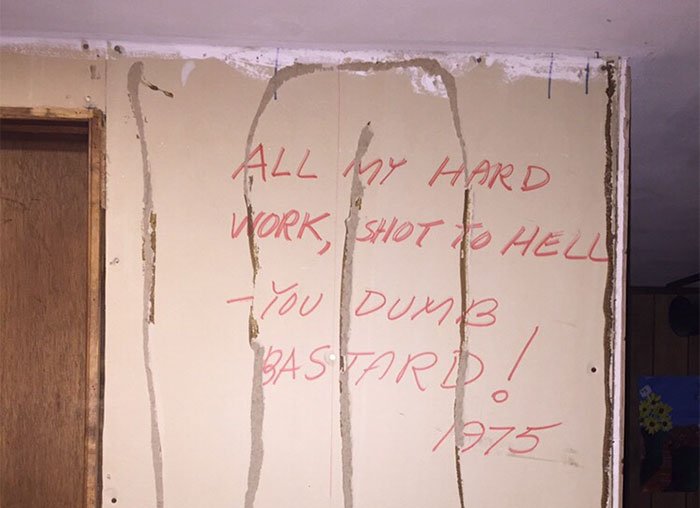 ALL MY HARD
WORK, SHOT TO HELL
-YOU DUMB
BASTARD!
1975